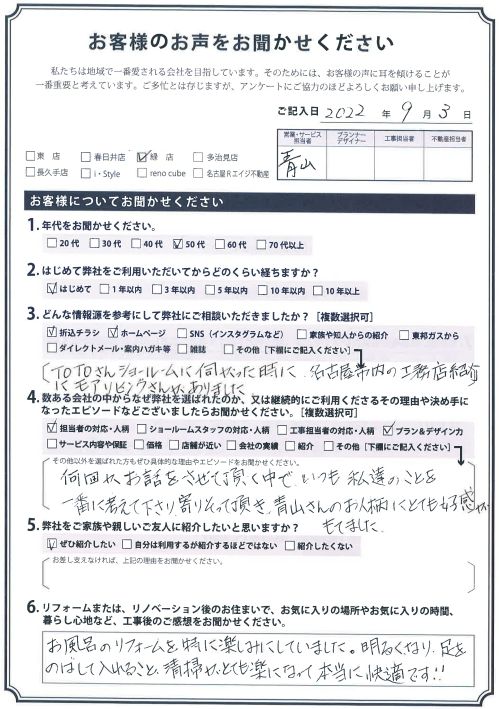 お客様のお声をお聞かせください
私たちは地域で一番愛される会社を目指しています。そのためには、お客様の声に耳を傾けることが
一番重要と考えています。ご多忙とは存じますが、アンケートにご協力のほどよろしくお願い申し上げます。
ご記入日 2022 年 9 月 3 日
営業・サービス担当者 プランナー・デザイナー 工事担当者 不動産担当者
青山
□東 店 □春日井店 ☑緑 店 □多治見店
□長久手店 □i・Style □reno cube □名古屋Rエイジ不動産
お客様についてお聞かせください
1.年代をお聞かせください。
□20代 □30代 □40代 ☑50代 □60代 □70代以上
2.はじめて弊社をご利用いただいてからどのくらい経ちますか？
☑はじめて □1年以内 □3年以内 □5年以内 □10年以内 □10年以上
3.どんな情報源を参考にして弊社にご相談いただきましたか？［複数選択可］
☑折込チラシ ☑ホームページ □SNS（インスタグラムなど） □家族や知人からの紹介 □東邦ガスから
□ダイレクトメール・案内ハガキ等 □雑誌 □その他［下欄にご記入ください］
TOTOさんショールームに伺った時に、名古屋市内の工務店紹介
にモアリビングさんがありました
4.数ある会社の中からなぜ弊社を選ばれたのか、又は継続的にご利用くださるその理由や決め手に
なったエピソードなどございましたらお聞かせください。［複数選択可］
☑担当者の対応・人柄 □ショールームスタッフの対応・人柄 □工事担当者の対応・人柄 ☑プラン&デザイン力
□サービス内容や保証 □価格 □店舗が近い □会社の実績 □紹介 □その他［下欄にご記入ください］
その他以外を選ばれた方もぜひ具体的な理由やエピソードをお聞かせください。
何回かお話をさせて頂く中で、いつも私達のことを
一番に考えて下さり寄りそって頂き、青山さんのお人柄にとても好感が
もてました
5.弊社をご家族や親しいご友人に紹介したいと思いますか？
☑ぜひ紹介したい □自分は利用するが紹介するほどではない □紹介したくない
お差し支えなければ、上記の理由をお聞かせください。
6.リフォームまたは、リノベーション後のお住まいで、お気に入りの場所やお気に入りの時間、
暮らし心地など、工事後のご感想をお聞かせください。
お風呂のリフォームを特に楽しみにしていました。明るくなり、足を
のばして入れること、清掃がとても楽になって本当に快適です!!